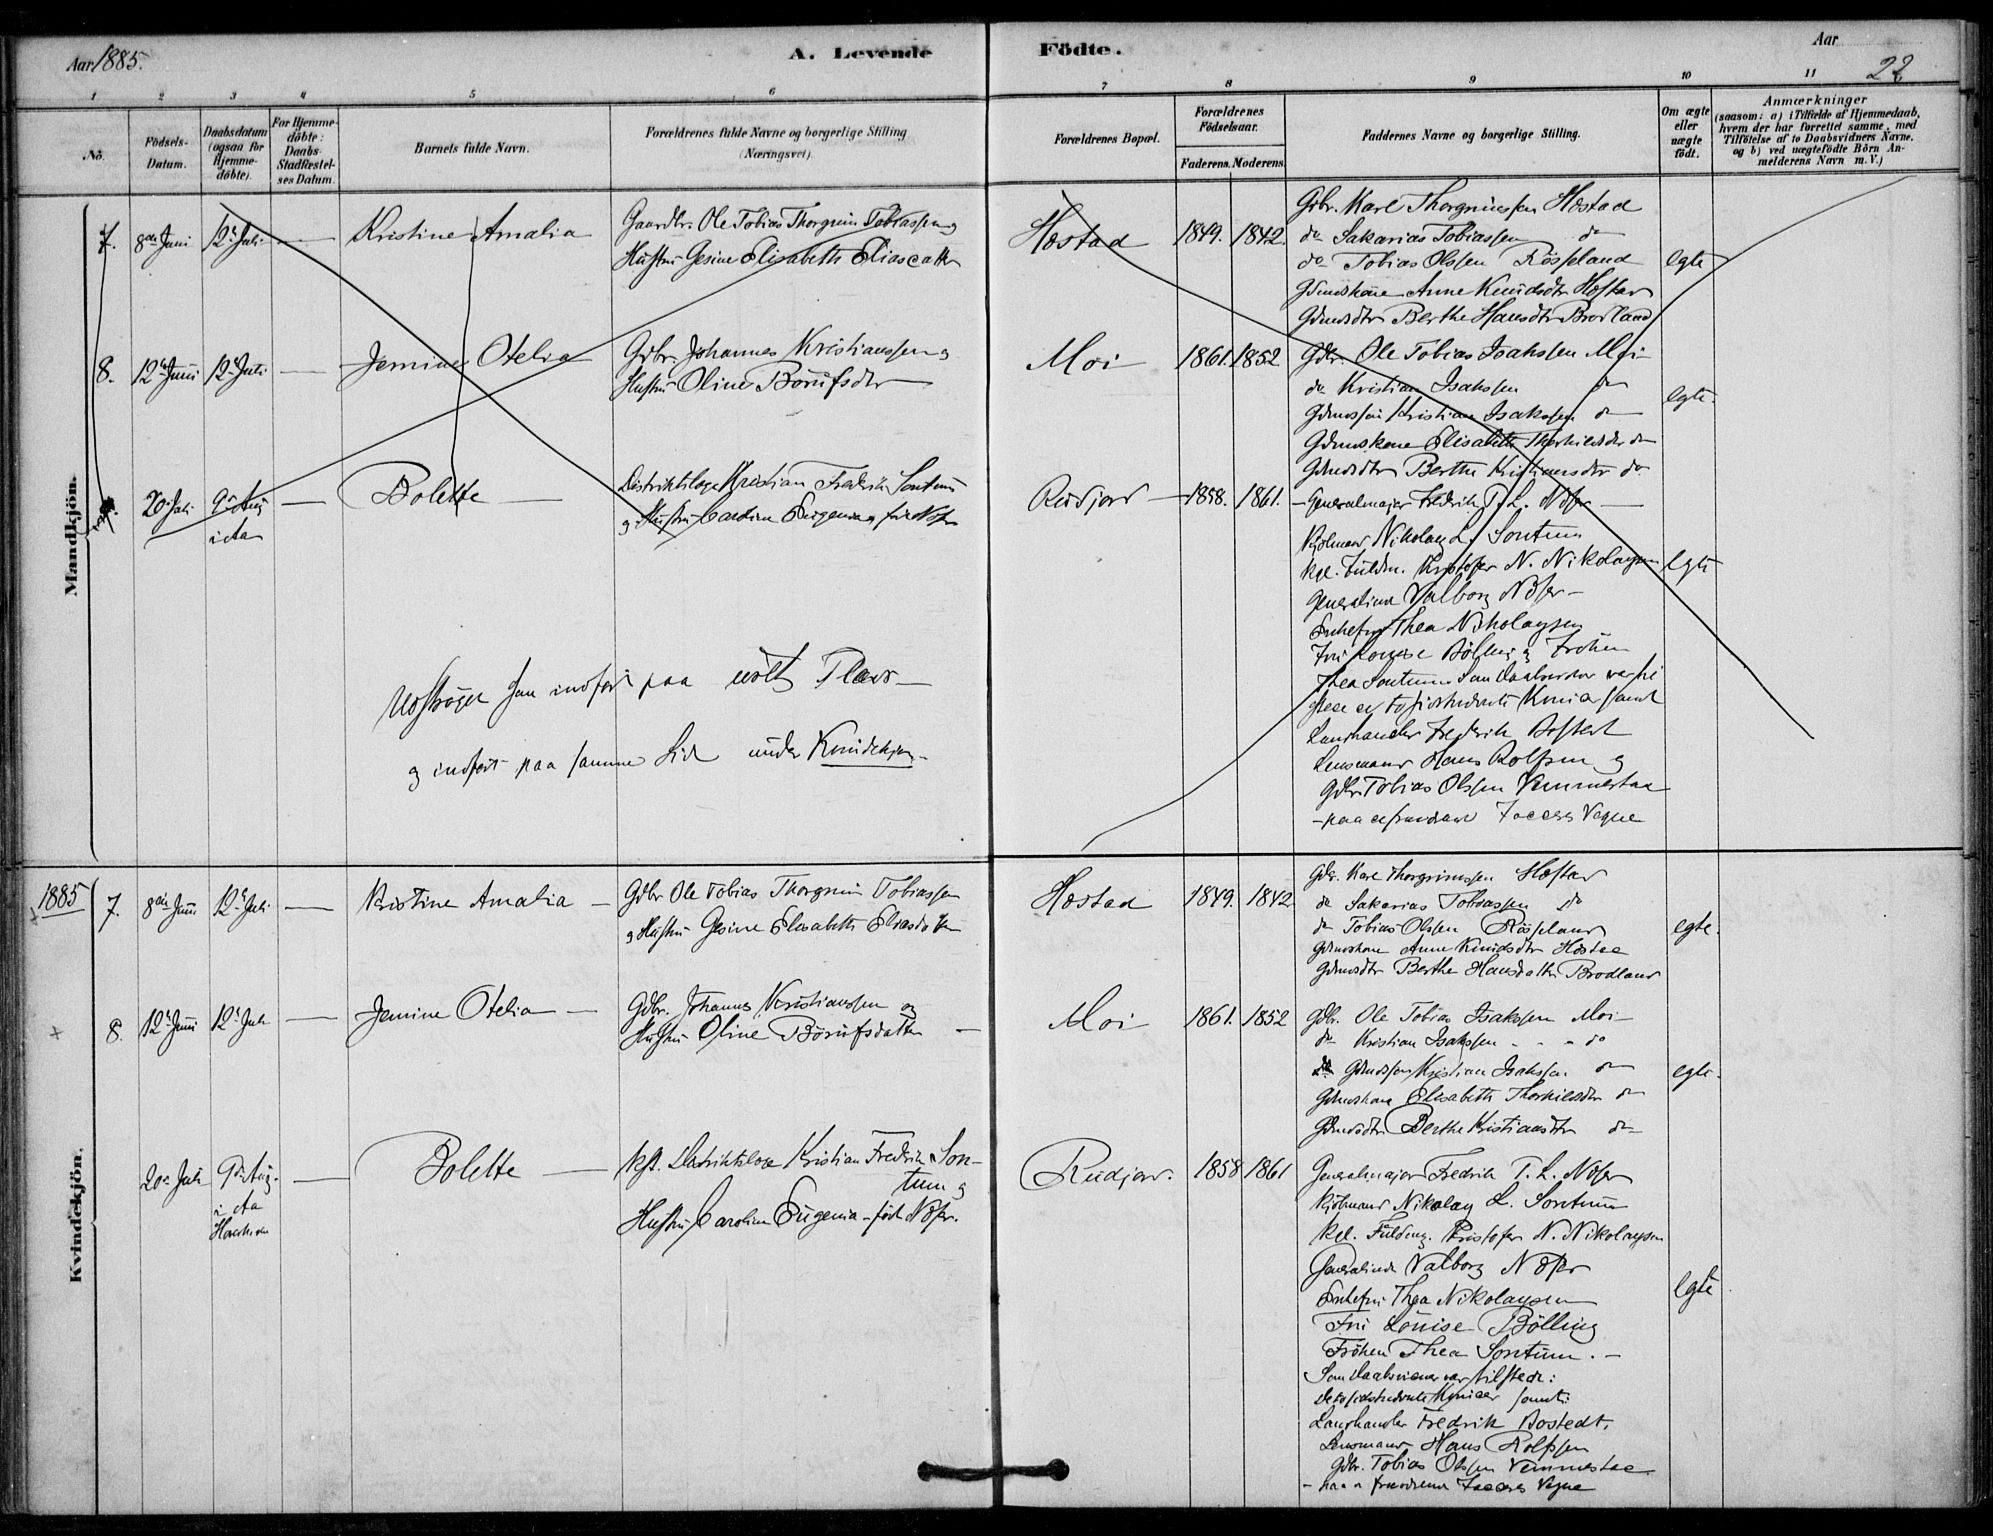 Aar 1885.
A. Levende
Födte.
Aar
22
1 2 3 4 5 6 7 8 9 10 11
No.
Födsels-
Datum.
Daabsdatum
(ogsaa for
Hjemme-
döbte).
For Hjemme-
döbte:
Daabs-
Stadfæstel-
ses Datum.
Barnets fulde Navn.
Forældrenes fulde Navne og borgerlige Stilling
(Næringsvei).
Forældrenes Bopæl.
Forældrenes
Födselsaar.
Faderens. Moderens.
Faddernes Navne og borgerlige Stilling.
Om ægte
eller
uægte
födt.
Anmærkninger
(saasom: a) i Tilfælde af Hjemmedaab,
hvem der har forrettet samme, med
Tilföielse af to Daabsvidners Navne.
og b) ved uægtefödte Börn An-
melderens Navn m. V.)
Mandkjön.
7.
8de Juni
12te Juli
Kristine Amalia
Gaardbr. Ole Tobias Thorgrim Tobiassen og
Hustru Gesine Elisabeth Eliasdatter
Hæstad
1849. 1842.
Gdbr. Karl Thorgrimsen Hæstad
do Sakarias Tobiassen do
do Tobias Olssen Rösseland
Gdmdskone Anne Knudsdtr Hæstad
Gdmdsdtr Berthe Hansdtr Brodland
egte
8.
12te Juni
12te Juli
Jemine Otelia
Gdbr. Johannes Kristianssen og
Hustru Oline Börufsdtr
Moi
1861. 1852
Gdbr. Ole Tobias Isakssen Moi
do Kristian Isakssen do
Gdmdssön Kristian Isakssen do
Gdmdskone Elisabeth Thorkildsdtr do
Gdmdsdtr Berthe Kristiansdtr do
egte.
20de Juli
9de Aug
i Aa
Bolette
Distriktslæge Kristian Fredrik Sontum
og Hustru Caroline Eugenia, född Næser
Rudjord
1858. 1861.
Generalmajor Fredrik T. L. Næser
Kjöbmand Nikolay L. Sontum
Kgl. Fuldm. Kristofer N. Nikolaysen
Generalinde Valborg Næser
Enkefru Thea Nikolaysen
Fru Louise Bölling og Fröken
Thea Sontum
Landhandler Fredrik Bostedt
Lensmand Hans Rolfsen og
Gdbr Tobias Olssen Vemmestad
egte
indfört paa urett Plads
og indfört paa samme Side under Kvindekjön.
Kvindekjön.
1885
7.
8de Juni
12te Juli
Kristine Amalia
Gdbr Ole Tobias Thorgrim Tobiassen
og Hustru Gesine Elisabeth Eliasdatter
Hæstad
1849. 1842.
Gdbr. Karl Thorgrimssen Hæstad
do Sakarias Tobiassen do
do Tobias Olssen Rösseland
Gdmdskone Anne Knudsdtr Hæstad
Gdmdsdtr Berthe Hansdatter Brodland
egte.
8.
12te Juni
12te Juli
Jemine Otelia
Gdbr. Johannes Kristianssen og
Hustru Oline Börufsdatter
Moi
1861. 1852
Gdbr. Ole Tobias Isakssen Moi
do Kristian Isakssen do
Gdmdssön Kristian Isakssen do
Gdmdskone Elisabeth Thorkildsdtr do
Gdmdsdtr Berthe Kristiansdtr do
egte.
20de Juli
9de Aug.
i Aa
Bolette
Distriktslæge Kristian Fredrik Son-
tum og
Hustru Caroline Eugenia född Næser.
Rudjord.
1858 1861
Generalmajor Fredrik T. L. Næser
Kjöbmand Nikolay L. Sontum
Kgl. Fuldmg. Kristofer N. Nikolaysen
Generalinde Valborg Næser
Enkefru Thea Nikolaysen
Fru Louise Bölling
Fröken Thea Sontum.
Som Daabsvidner var tilstede:
Landhandler Fredrik Bostedt,
Lensmand Hans Rolfsen
Gdbr. Tobias Olssen Vemmestad
egte